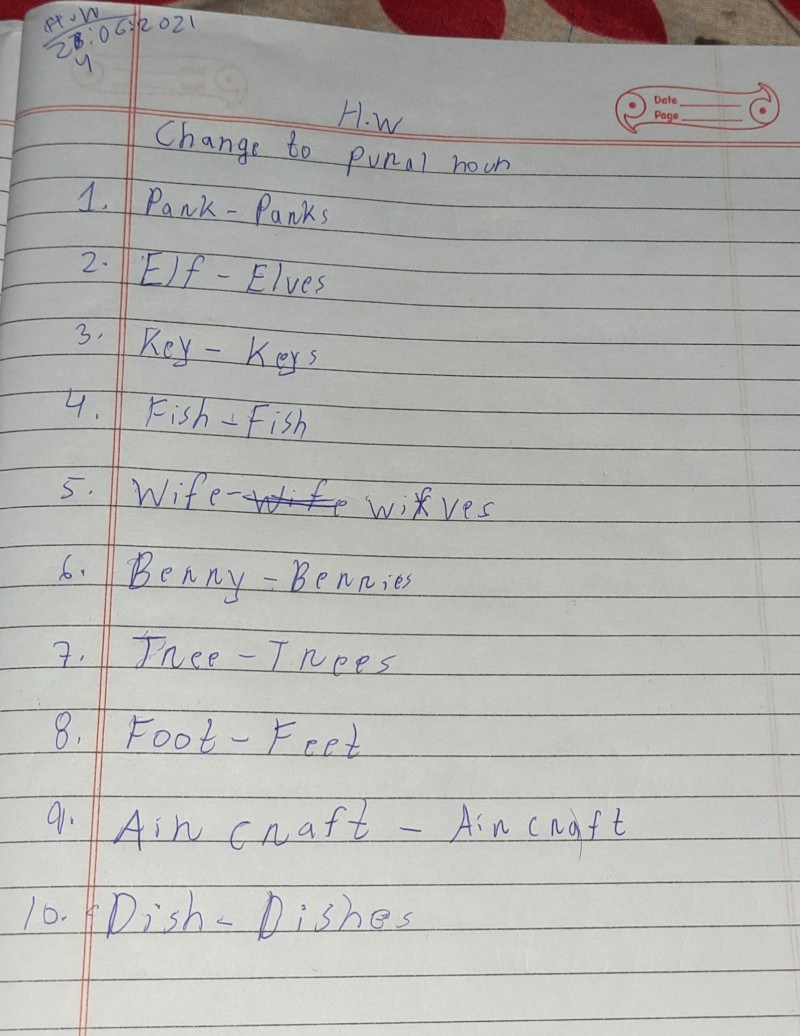 H.W
28:06:2021
4
Date
Page
H.W
Change to pural noun
1. Park - Parks
2. Elf - Elves
3. Key - Keys
4. Fish - Fish
5. Wife - wives
6. Berry - Berries
7. Tree - Trees
8. Foot - Feet
9. Air craft - Air craft
10. Dish - Dishes